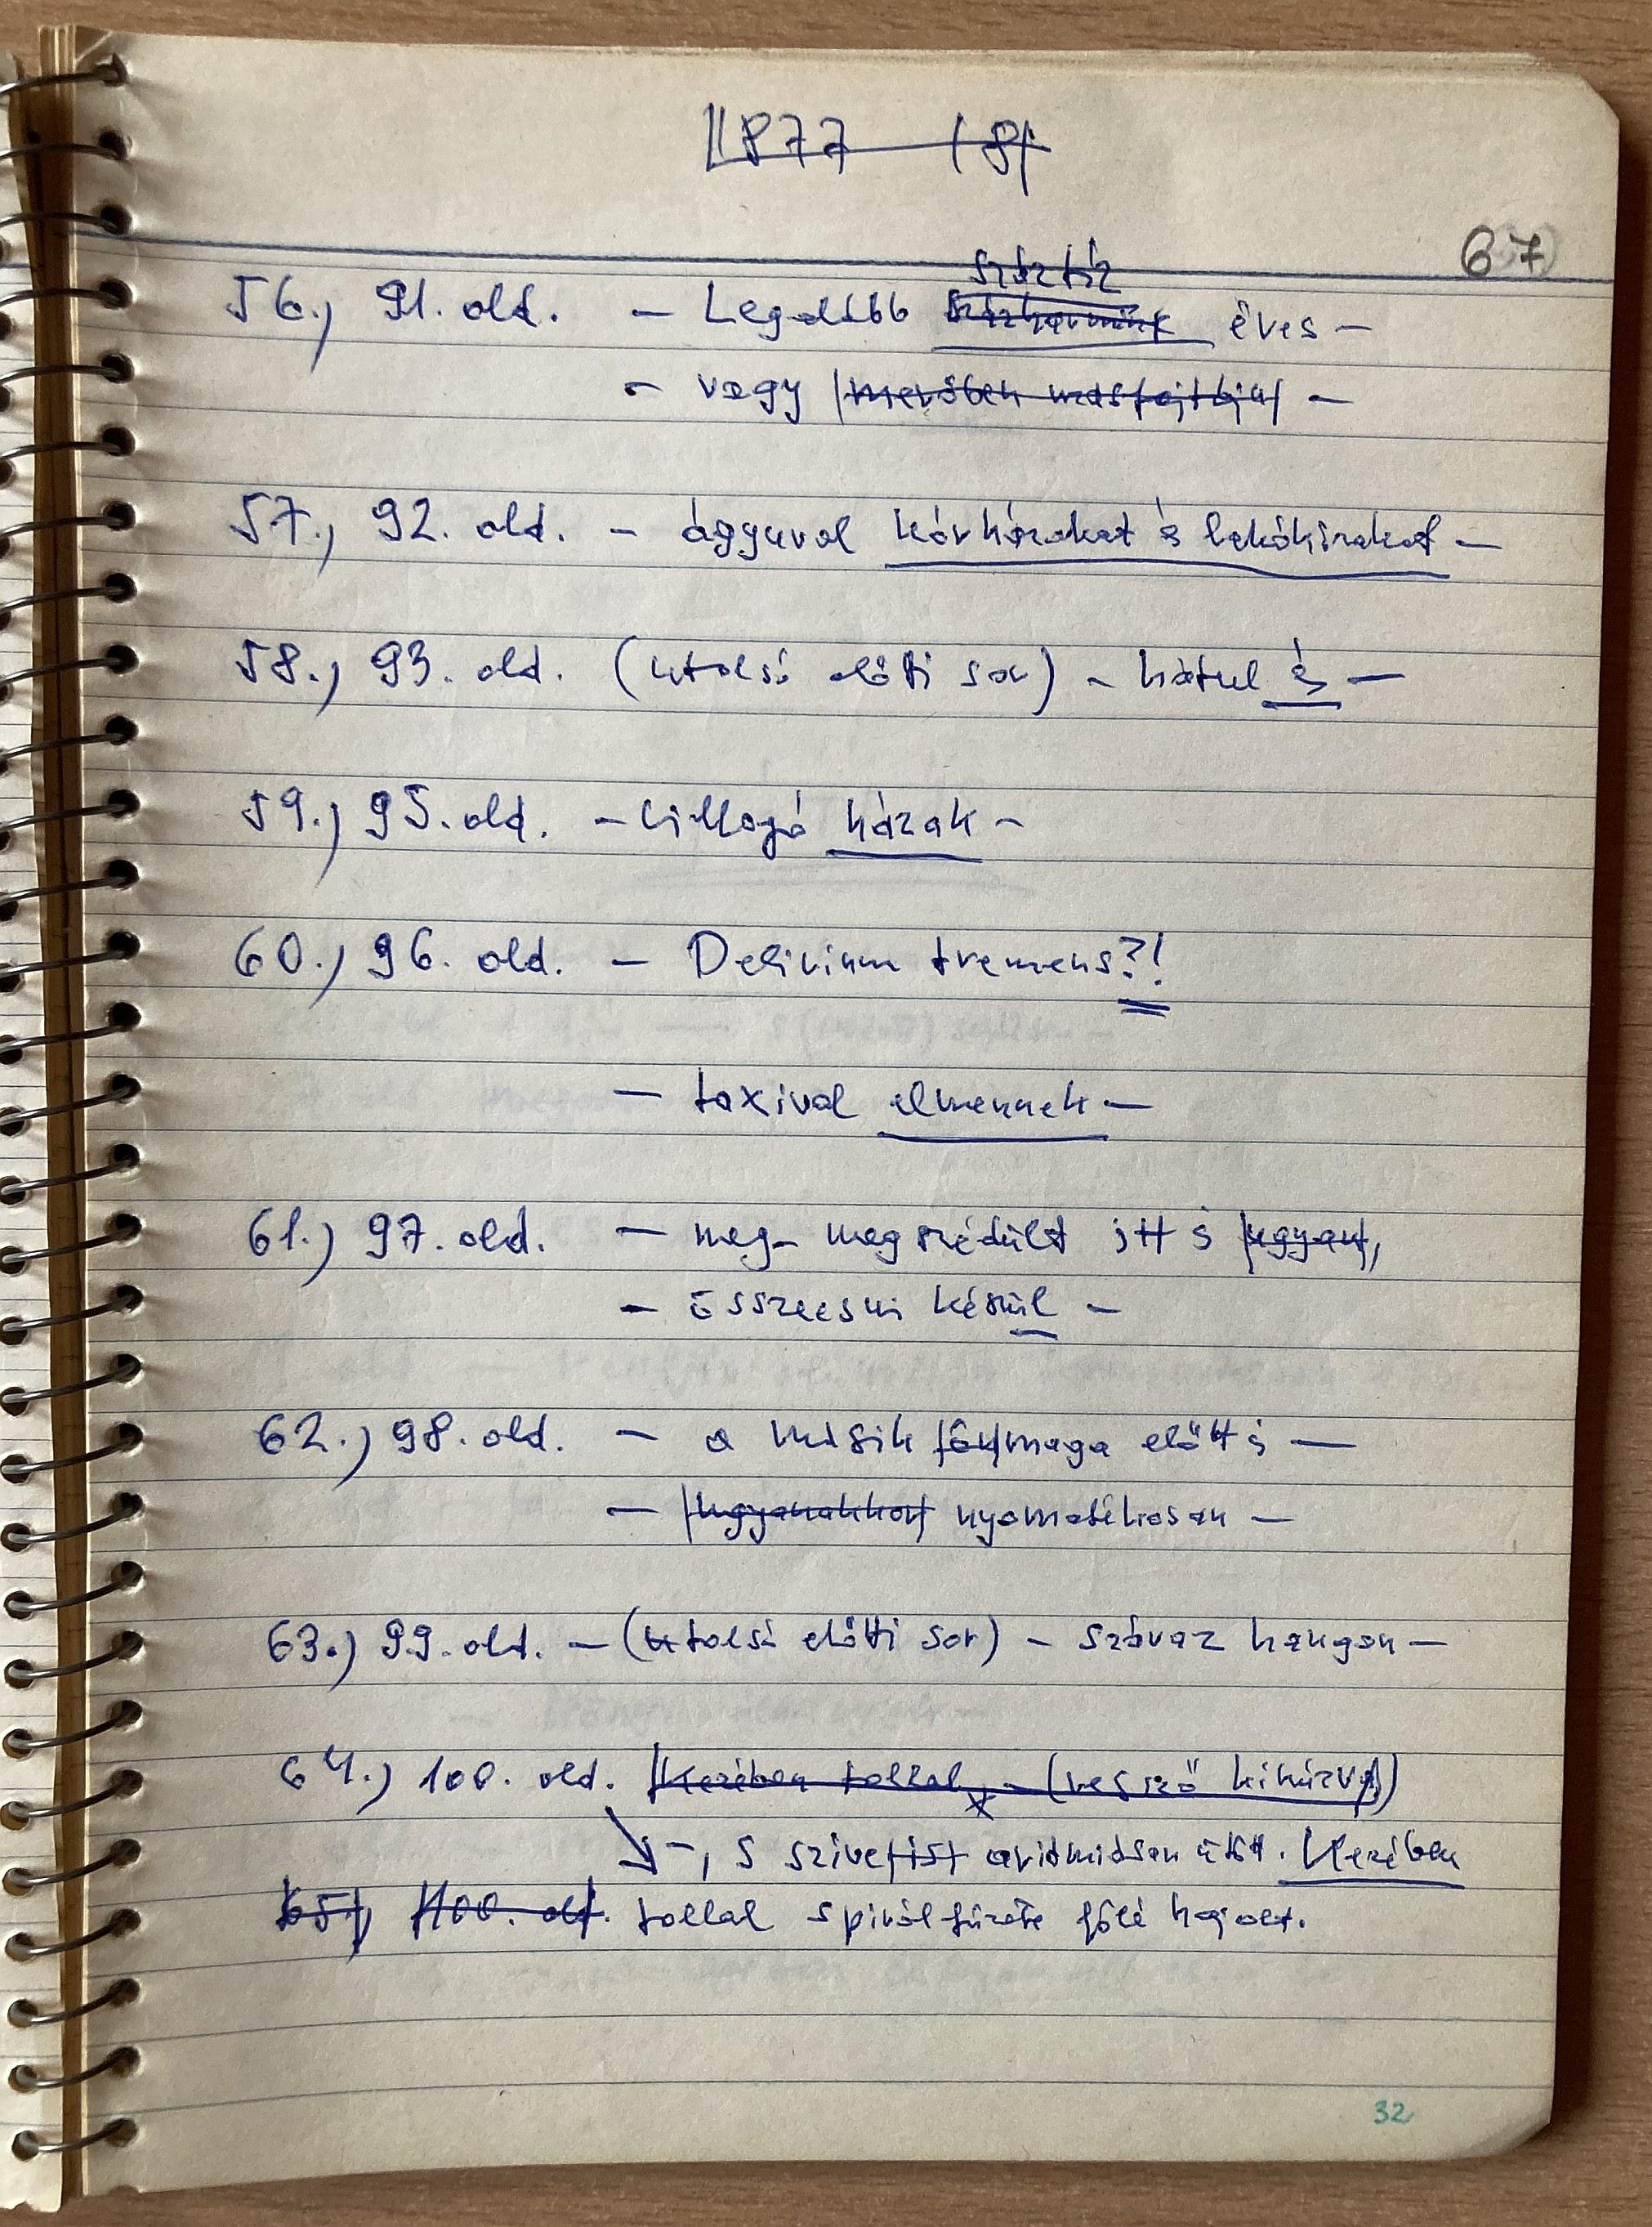 1877 (8)
67
száztíz
56.) 91. old. – Legalább százharminc éves –
– vagy –
57.) 92. old. – ágyuval kórházakat és lakóházakat –
58.) 93. old. (utolsó előtti sor) – hátul és –
59.) 95. old. – villogó házak –
60.) 96. old. – Delirium tremens?!
– taxival elmennek –
61.) 97. old. – meg-megszédült itt is ugyan,
– összeesni készül –
62.) 98. old. – a másik maga előtt is –
– ugyanakkor nyomatékosan –
63.) 99. old. – (utolsó előtti sor) – száraz hangon –
64.) 100. old. Kezében tollal, – (vessző kihúzva)
–, s szivet ütött. Kezében
65.) 100. old. tollal spirálfüzete fölé hajolt.
32